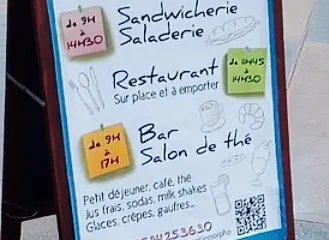 de 9H
à
14H30
Sandwicherie
Saladerie
Restaurant
Sur place et à emporter
de 11H45
à
14H30
de 9H
à
17H
Bar
Salon de thé
Petit déjeuner, café, thé
Jus frais, sodas, milk shakes
Glaces, crêpes, gaufres...